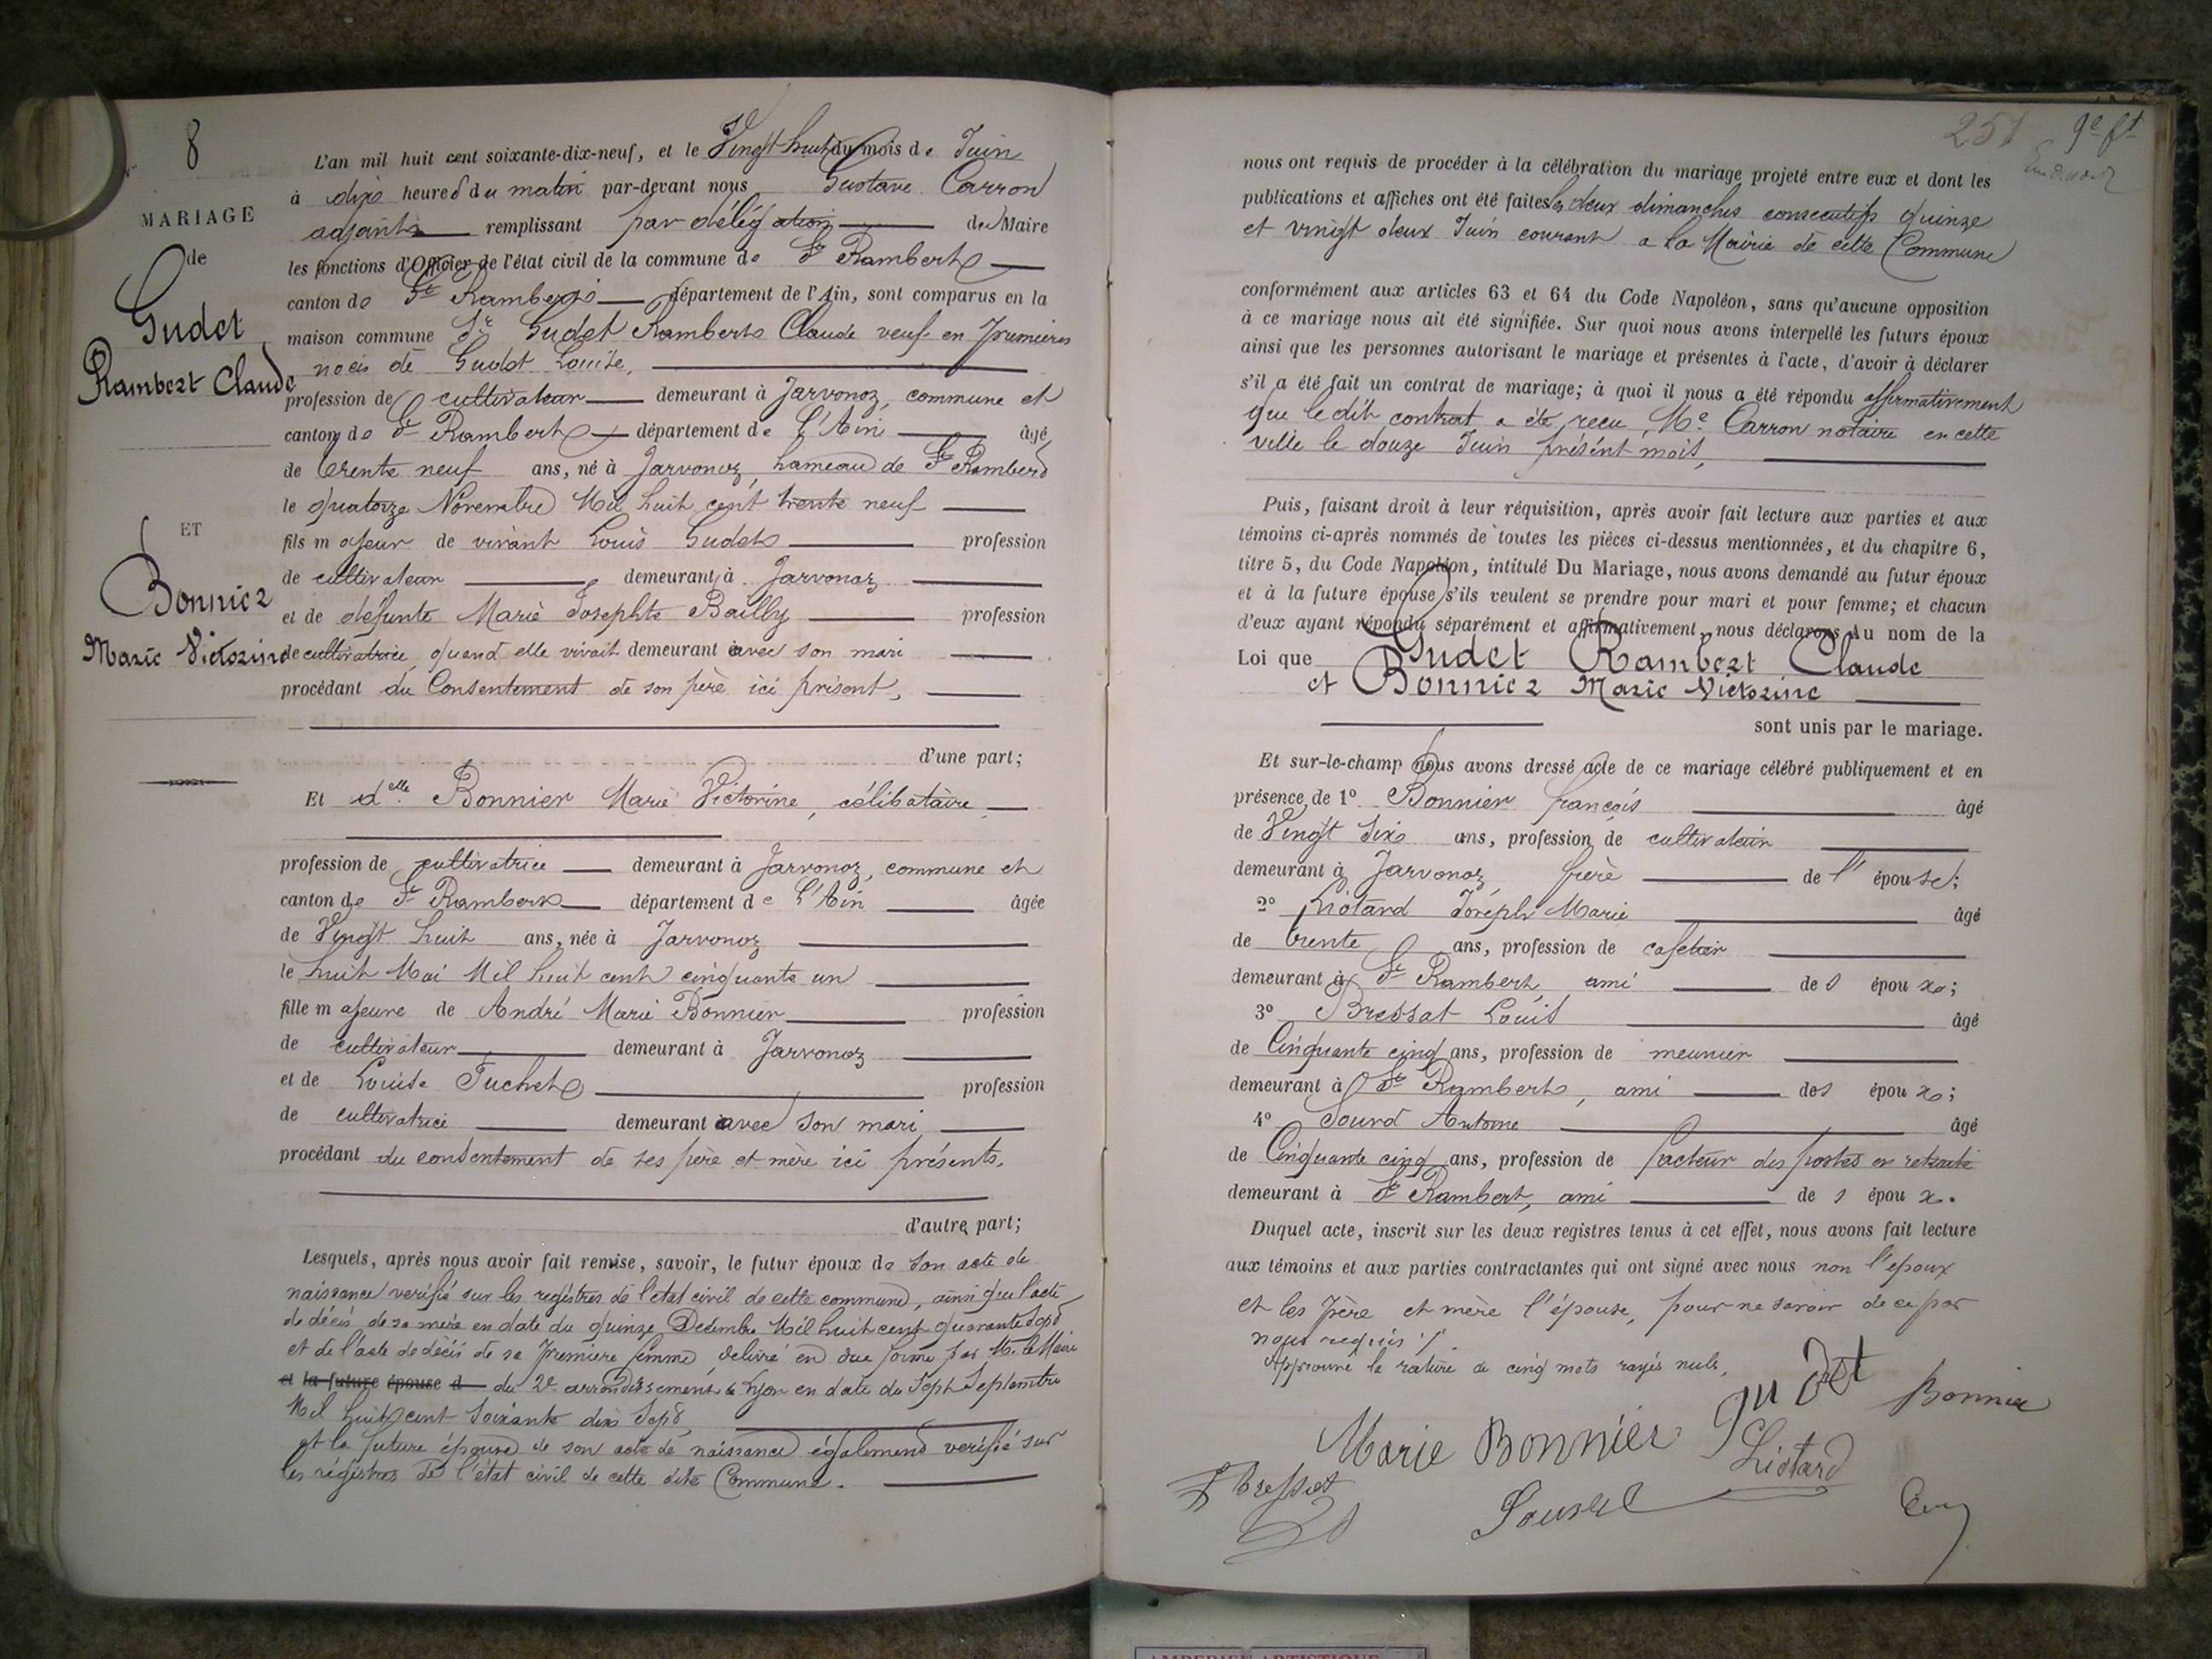 8
MARIAGE
de
Gudet
Rambert Claude
ET
Bonnier
Marie Victorine
L'an mil huit cent soixante-dix-neuf, et le Vingt huit du mois de Juin
à dixe heures du matin par-devant nous Gustave Carron
adjoint remplissant par délégation de Maire
les fonctions d'Officier de l'état civil de la commune de St Rambert
canton de St Rambert département de l'Ain, sont comparus en la
maison commune Sr Gudet Rambert Claude veuf en premieres
noces de Gudet Louise,
profession de cultivateur demeurant à Javornoz, commune et
canton de St Rambert département de L'Ain âgé
de trente neuf ans, né à Javornoz, hameau de St Rambert
le quatorze Novembre Mil huit cent trente neuf
fils majeur de vivant Louis Gudet profession
de cultivateur demeurant à Javornoz
et de défunte Marie Josephte Bailly profession
de cultivatrice quand elle vivait demeurant avec son mari
procédant du Consentement de son père ici présent,
d'une part;
Et delle Bonnier Marie Victorine, célibataire
profession de cultivatrice demeurant à Javornoz, commune et
canton de St Rambert département de L'Ain âgée
de Vingt huit ans, née à Javornoz
le huit Mai Mil huit cent cinquante un
fille majeure de André Marie Bonnier profession
de cultivateur demeurant à Javornoz
et de Louise Juchet profession
de cultivatrice demeurant avec son mari
procédant du consentement de ses père et mère ici présents,
d'autre part;
Lesquels, après nous avoir fait remise, savoir, le futur époux de son acte de
naissance vérifié sur les registres de l'état civil de cette commune, ainsi que l'acte
de décès de sa mère en date du quinze Décembre Mil huit cent quarante sept
et de l'acte de décès de sa premiere femme délivré en due forme par M. le Maire
et la future épouse d du 2e arrondissement de Lyon en date du Sept Septembre
Mil huit cent soixante dix sept,
et la future épouse de son acte de naissance également vérifié sur
les régistres de l'état civil de cette dite Commune.
251 9e ft
nous ont requis de procéder à la célébration du mariage projeté entre eux et dont les
publications et affiches ont été faites les deux dimanches consecutifs quinze
et vingt deux Juin courant a la Mairie de cette Commune
conformément aux articles 63 et 64 du Code Napoléon, sans qu'aucune opposition
à ce mariage nous ait été signifiée. Sur quoi nous avons interpellé les futurs époux
ainsi que les personnes autorisant le mariage et présentes à l'acte, d'avoir à déclarer
s'il a été fait un contrat de mariage; à quoi il nous a été répondu affirmativement
que le dit contrat a été recu Me Carron notaire en cette
ville le douze Juin présent mois,
Puis, faisant droit à leur réquisition, après avoir fait lecture aux parties et aux
témoins ci-après nommés de toutes les pièces ci-dessus mentionnées, et du chapitre 6,
titre 5, du Code Napoléon, intitulé Du Mariage, nous avons demandé au futur époux
et à la future épouse s'ils veulent se prendre pour mari et pour femme; et chacun
d'eux ayant répondu séparément et affirmativement, nous déclarons Au nom de la
Loi que Gudet Rambert Claude
et Bonnier Marie Victorine
sont unis par le mariage.
Et sur-le-champ nous avons dressé acte de ce mariage célébré publiquement et en
présence de 1º Bonnier françois âgé
de Vingt six ans, profession de cultivateur
demeurant à Javornoz frère de l'épouse;
2º Liotard Joseph Marie âgé
de trente ans, profession de cafetier
demeurant à St Rambert ami des époux;
3º Bressat Louis âgé
de Cinquante cinq ans, profession de meunier
demeurant à St Rambert, ami des époux;
4º Sourd Antoine âgé
de Cinquante cinq ans, profession de facteur des postes en retraite
demeurant à St Rambert, ami des époux.
Duquel acte, inscrit sur les deux registres tenus à cet effet, nous avons fait lecture
aux témoins et aux parties contractantes qui ont signé avec nous non l'époux
et les père et mère l'épouse, pour ne savoir de ce par
nous requis ./.
Approuvé la rature de cinq mots rayés nuls,
Gudet Bonnier
Marie Bonnier Liotard
L Bressat
Sourd